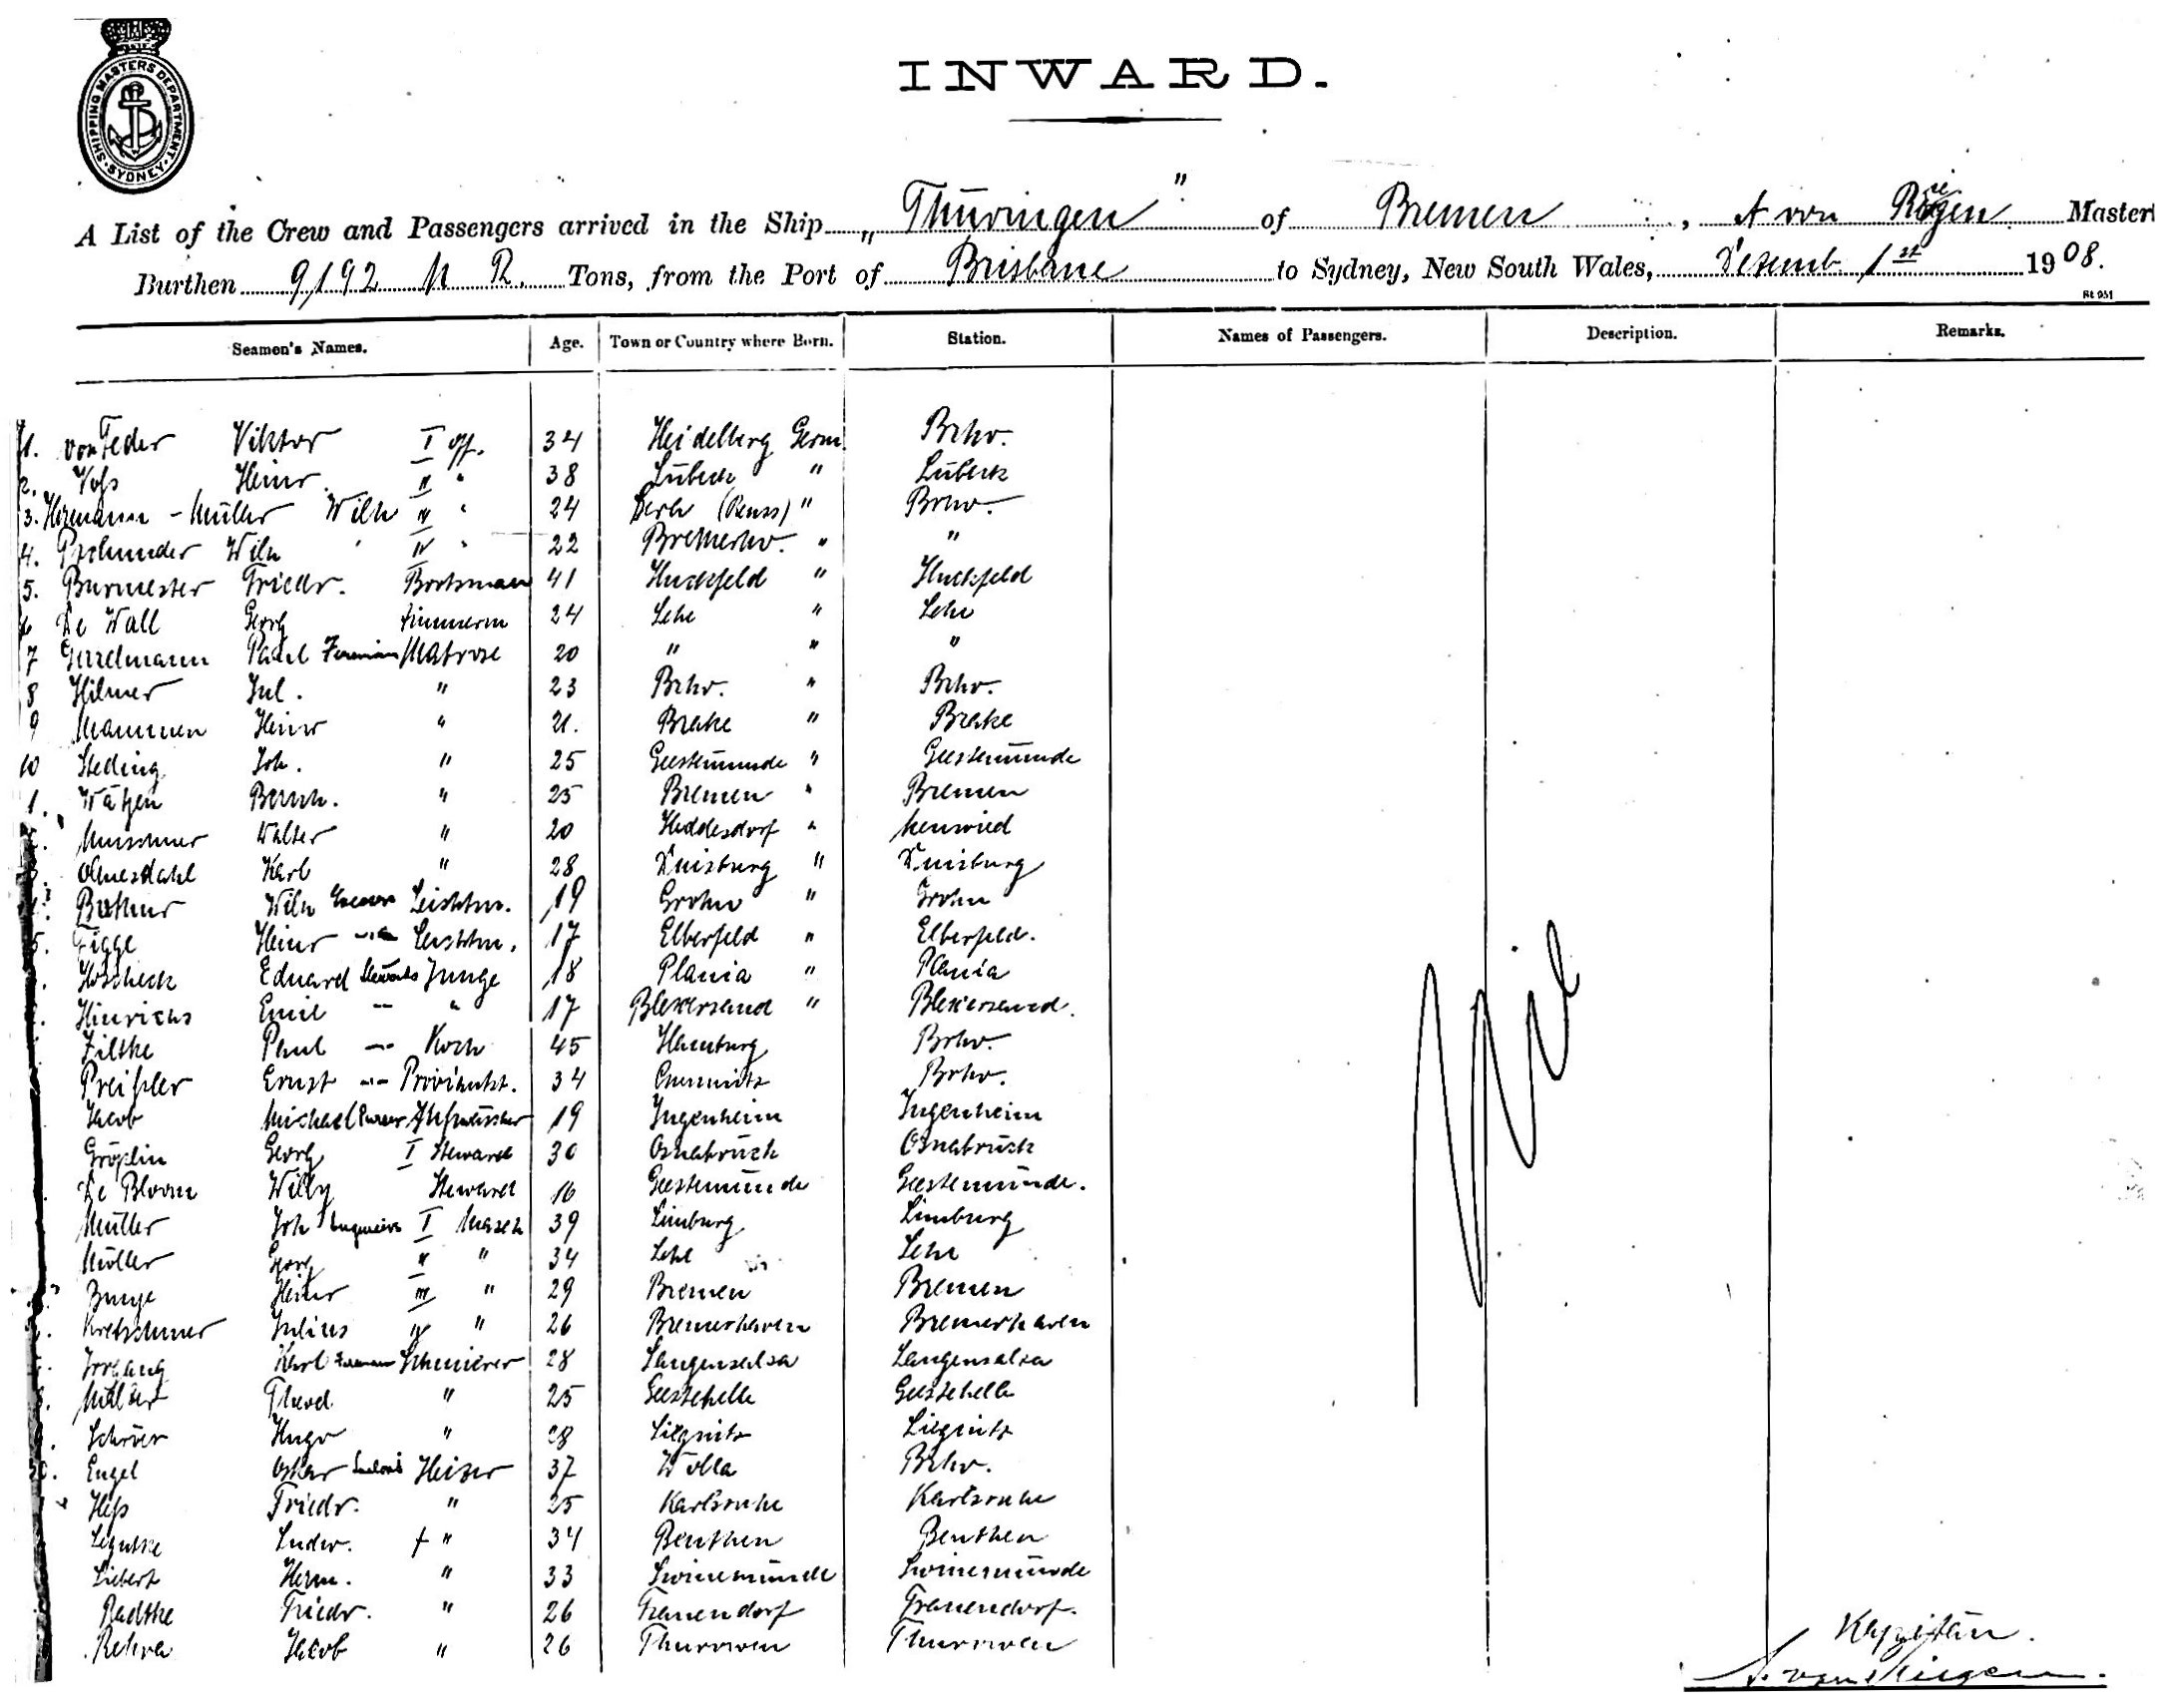 SHIPPING MASTERS DEPARTMENT · SYDNEY ·
INWARD.
A List of the Crew and Passengers arrived in the Ship „Thüringen" of Bremen, A von Master
Burthen 9192 N R. Tons, from the Port of Brisbane to Sydney, New South Wales, Dezemb. 1st 1908.
St 951
Seamen's Names. Age. Town or Country where Born. Station. Names of Passengers. Description. Remarks.
1. von Feder Viktor I off. 34 Heidelberg Germ. Brhv.
2. Voß Heinr. II " 38 Lübeck " Lübeck
3. Hermann - Müller Wilh " 24 (Reuss) " Brhv.
4. Wilh IV " 22 Bremerhv. " "
5. Burmester Friedr. Bootsmann 41 Huckfeld " Huckfeld
6 De Wall Georg Zimmerm 24 Lehe " Lehe
7 Paul Matrose 20 " " "
8 Hilmer Jul. " 23 Brhv. " Brhv.
9 Mammen Heinr " 21. Brake " Brake
10 Steding Joh. " 25 Geestemünde " Geestemünde
1. Wätjen Bernh. " 25 Bremen " Bremen
Walter " 20 Heddesdorf " Neuwied
Karl " 28 Duisburg " Duisburg
Wilh Leichtm. 19 Grohn " Grohn
5. Figge Heinr Leichtm. 17 Elberfeld " Elberfeld.
Eduard Stewards Junge 18 Plania " Plania
Hinrichs Emil -- " 17 Blexersand " Blexersand.
Paul -- Koch 45 Hamburg Brhv.
Preißler Ernst -- Proviantst. 34 Chemnitz Brhv.
Jacob Michael Aufwäscher 19 Jugenheim Jugenheim
Gröplin Georg I Steward 30 Osnabrück Osnabrück
De Bloom Willy Steward 16 Geestemünde Geestemünde.
Müller Joh Engineers I Masch 39 Limburg Limburg
Möller Georg II " 34 Lehe Lehe
Bunge Heinr III " 29 Bremen Bremen
Kretschmer Julius IV " 26 Bremerhaven Bremerhaven
Irrgang Karl Schmierer 28 Langensalza Langensalza
Theod " 25 Geestehelle Geestehelle
Schröer Hugo " 28 Liegnitz Liegnitz
30. Engel Oskar Heizer 37 Wolla Brhv.
Heß Friedr. " 25 Karlsruhe Karlsruhe
Ludw. + " 34 Beuthen Beuthen
Liebert Herm. " 33 Swinemünde Swinemünde
Radtke Friedr. " 26 Frauendorf Frauendorf.
Jacob " 26
Nil
Kapitän.